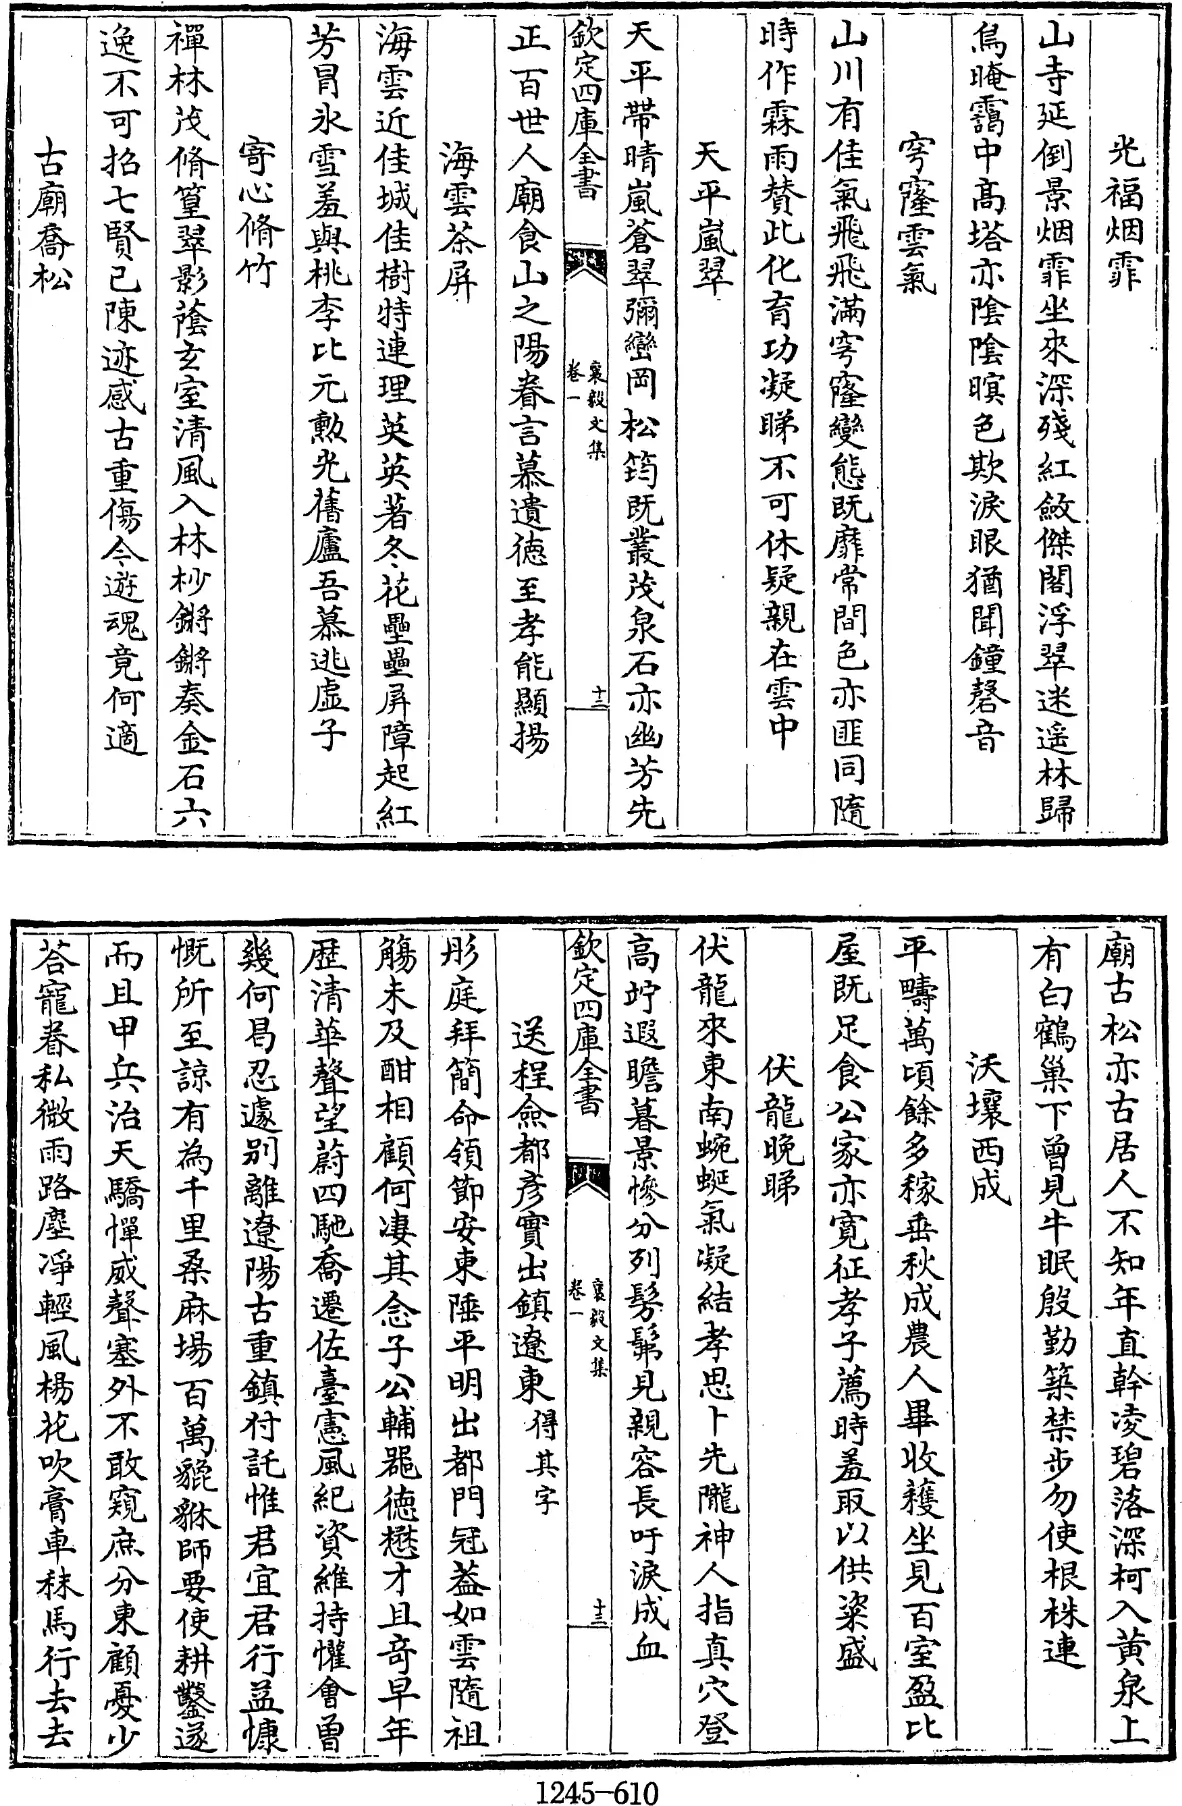 光福烟霏
山寺延倒景烟霏坐來深殘紅斂傑閣浮翠迷遥林歸
鳥晻靄中髙塔亦陰陰暝色欺淚眼猶聞鐘磬音
穹窿雲氣
山川有佳氣飛飛滿穹窿變態既靡常間色亦匪同隨
時作霖雨賛此化育功凝睇不可休疑親在雲中
天平嵐翠
天平帶晴嵐蒼翠彌巒岡松筠既叢茂泉石亦幽芳先
欽定四庫全書
襄毅文集
卷一
十三
正百世人廟食山之陽眷言慕遺徳至孝能顯揚
海雲茶屏
海雲近佳城佳樹特連理英英著冬花壘壘屏障起紅
芳冒氷雪羞與桃李比元勲光舊廬吾慕逃虛子
寄心脩竹
禪林茂脩篁翠影蔭玄室清風入林杪鏘鏘奏金石六
逸不可招七賢已陳迹感古重傷今遊魂竟何適
古廟喬松
廟古松亦古居人不知年直幹凌碧落深柯入黄泉上
有白鶴巢下曾見牛眠殷勤築禁步勿使根株連
沃壤西成
平疇萬頃餘多稼垂秋成農人畢收穫坐見百室盈比
屋既足食公家亦寛征孝子薦時羞取以供粢盛
伏龍晚睇
伏龍來東南蜿蜒氣凝結孝思卜先隴神人指真穴登
高竚遐瞻暮景慘分列髣髴見親容長吁淚成血
欽定四庫全書
襄毅文集
卷一
十三
送程僉都彦實出鎮遼東得其字
彤庭拜簡命領節安東陲平明出都門冠葢如雲隨祖
觴未及酣相顧何凄其念子公輔器徳懋才且奇早年
歴清華聲望蔚四馳喬遷佐臺憲風紀資維持懽會曽
幾何曷忍遽别離遼陽古重鎮付託惟君宜君行益慷
慨所至諒有為千里桑麻場百萬貔貅師要使耕鑿遂
而且甲兵治天驕憚威聲塞外不敢窺庶分東顧憂少
荅寵眷私微雨路塵凈輕風楊花吹膏車秣馬行去去
1245-610